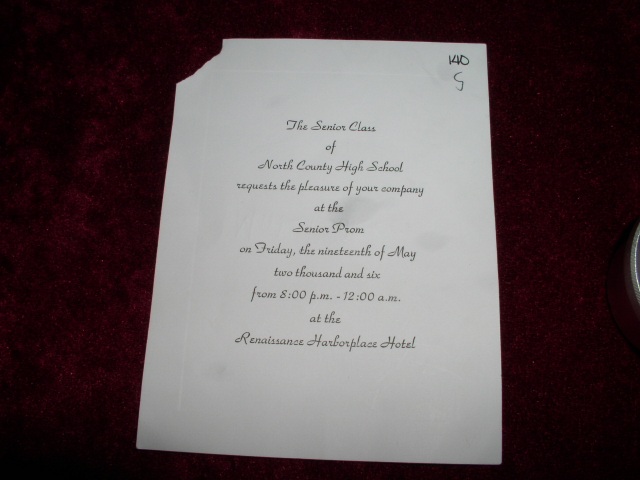 140
The Senior Class
of
North County High School
requests the pleasure of your company
at the
Senior Prom
on Friday, the nineteenth of May
two thousand and six
from 8:00 p.m. - 12:00 a.m.
at the
Renaissance Harborplace Hotel